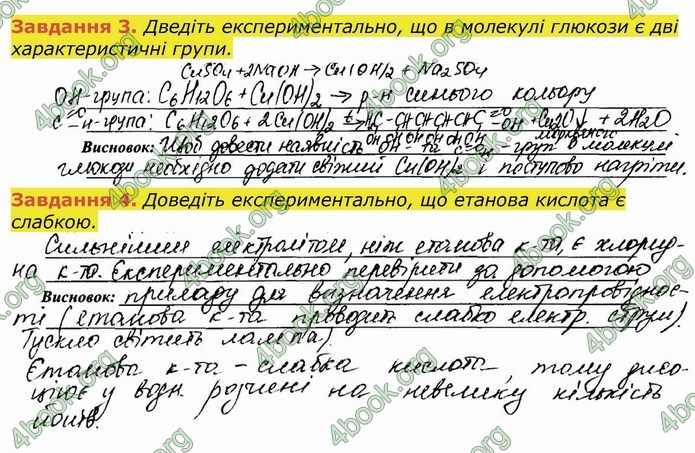 Завдання 3. Дведіть експериментально, що в молекулі глюкози є дві
характеристичні групи.
CuSO4+2NaOH→Cu(OH)2+Na2SO4
OH-група: C6H12O6+Cu(OH)2→р-н синього кольору
C=O-H-група: C6H12O6+2Cu(OH)2 t→ HC-CH CH CH CH C=O-OH+Cu2O↓+2H2O
OH OH OH OH OH
Висновок: Щоб довести наявність OH- та C=O-H-груп в молекулі
глюкози необхідно додати свіжий Cu(OH)2 і поступово нагріти.
Завдання 4. Доведіть експериментально, що етанова кислота є
слабкою.
Сильнішим електролітом, ніж етанова к-та, є хлорид-
на к-та. Експериментально перевірити за допомогою
Висновок: приладу для визначення електропровіднос-
ті (етанова к-та проводить слабко електр. струм).
Тускло світить лампа).
Етанова к-та-слабка кислота, тому дисо-
ціює у водн. розчині на невелику кількість
йонів.
4book.org
4book.org
4book.org
4book.org
4book.org
4book.org
4book.org
4book.org